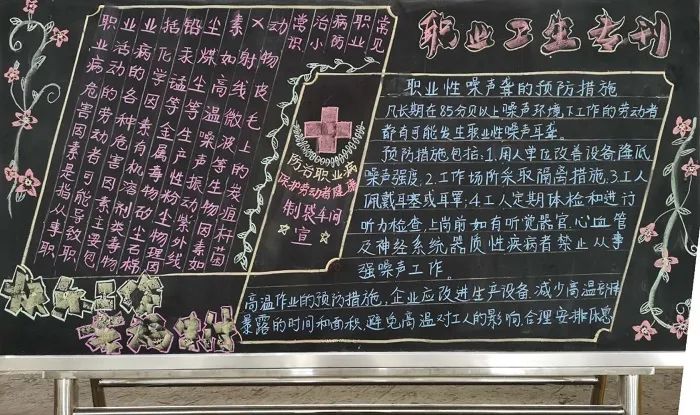 职业卫生专刊
常见
职业
病防
治小
常识
职业病危害因素是指从事职
业活动的劳动者可能导致职
业病的各种危害因素主要包
括化学因素有机溶剂类毒物
铅汞锰等金属毒物矽尘石棉
尘煤尘等生产性粉尘物理因
素如高温噪声振动紫外线
X射线微波等生物因素如
动物皮毛上的炭疽杆菌
防治职业病
保护劳动者健康
制袋车间
宣
职业性噪声聋的预防措施
凡长期在85分贝以上噪声环境下工作的劳动者
都有可能发生职业性噪声耳聋。
预防措施包括:1.用人单位改善设备,降低
噪声强度;2.工作场所采取隔离措施;3.工人
佩戴耳塞或耳罩;4.工人定期体检和进行
听力检查,上岗前如有听觉器官、心血管
及神经系统器质性疾病者禁止从事
强噪声工作。
高温作业的预防措施,企业应改进生产设备,减少高温
暴露的时间和面积,避免高温对工人的影响,合理安排休息